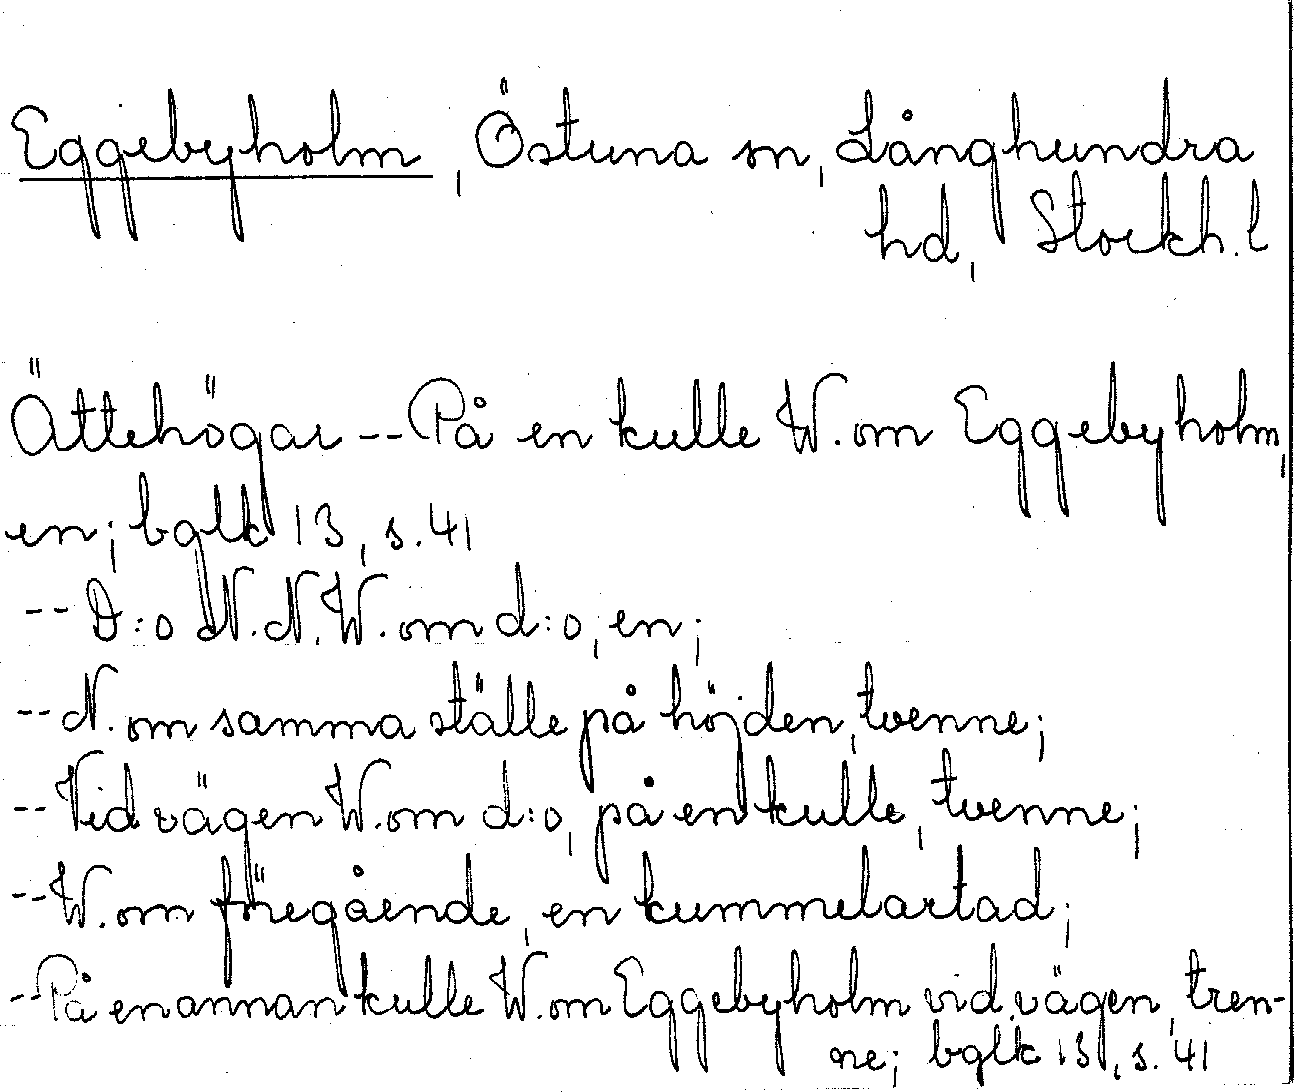 Eggebyholm, Östuna sn, Långhundra
hd, Stockh. l
Ättehögar -- På en kulle W. om Eggebyholm,
en; bglk 13, s. 41
-- D:o N.N.W. om d:o, en;
-- N. om samma ställe på höjden, tvenne;
-- Vid vägen W. om d:o, på en kulle, tvenne;
-- W. om föregående, en kummelartad;
-- På en annan kulle W. om Eggebyholm vid vägen, tren-
ne; bglk 13, s. 41